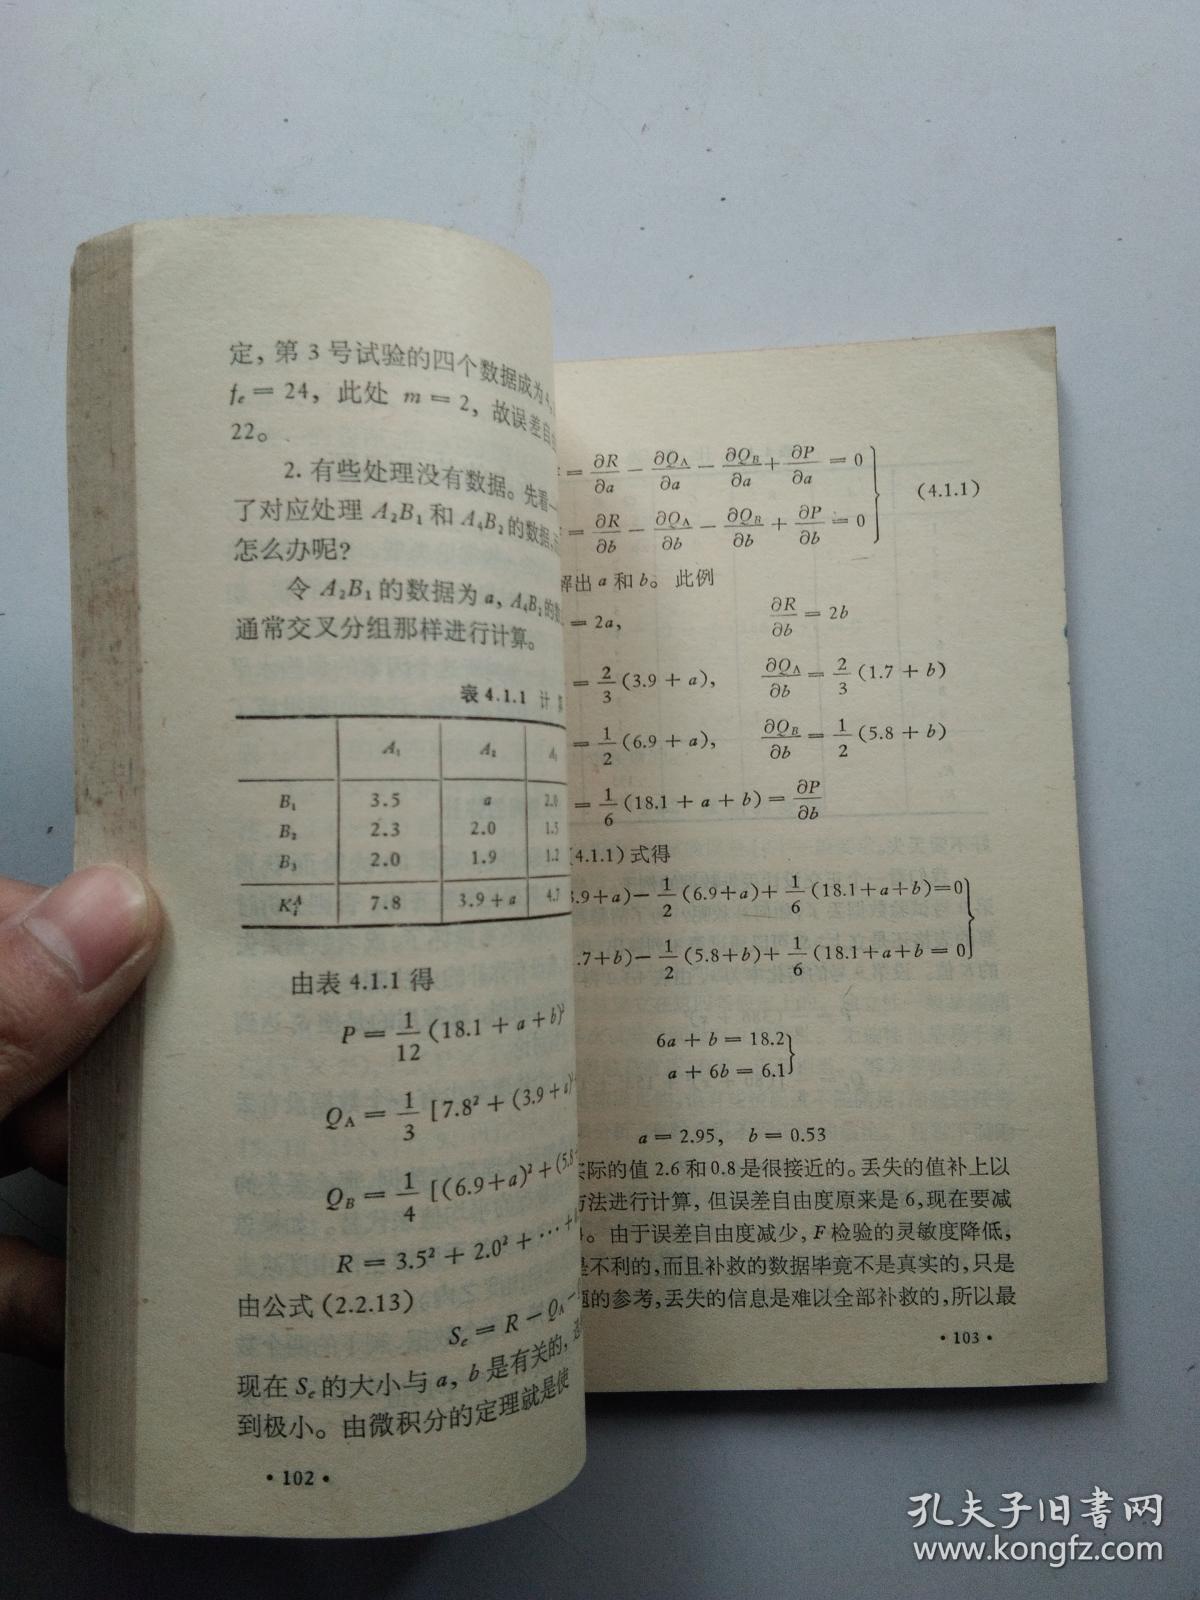 定，第 3 号试验的四个数据成为4，
fₑ = 24，此处 m = 2，故误差自
22。
2. 有些处理没有数据。先看一
了对应处理 A₂B₁ 和 A₄B₂ 的数据，
怎么办呢？
令 A₂B₁ 的数据为 a，A₄B₂ 的
通常交叉分组那样进行计算。
表 4.1.1 计
A₁ A₂
B₁ 3.5 a 2.0
B₂ 2.3 2.0 1.5
B₃ 2.0 1.9 1.2
Kᵢᴬ 7.8 3.9 + a 4.7
由表 4.1.1 得
P = 1/12 (18.1 + a + b)²
Q_A = 1/3 [7.8² + (3.9 + a)²
Q_B = 1/4 [(6.9+a)² + (5.8
R = 3.5² + 2.0² + ⋯ +
由公式 (2.2.13)
Sₑ = R − Q_A −
现在 Sₑ 的大小与 a，b 是有关的，
到极小。由微积分的定理就是使
• 102 •
= ∂R/∂a − ∂Q_A/∂a − ∂Q_B/∂a + ∂P/∂a = 0
(4.1.1)
= ∂R/∂b − ∂Q_A/∂b − ∂Q_B/∂b + ∂P/∂b = 0
解出 a 和 b。此例
= 2a, ∂R/∂b = 2b
= 2/3 (3.9 + a), ∂Q_A/∂b = 2/3 (1.7 + b)
= 1/2 (6.9 + a), ∂Q_B/∂b = 1/2 (5.8 + b)
= 1/6 (18.1 + a + b) = ∂P/∂b
(4.1.1) 式得
3.9+a) − 1/2 (6.9+a) + 1/6 (18.1+a+b)=0
.7+b) − 1/2 (5.8+b) + 1/6 (18.1+a+b = 0
6a + b = 18.2
a + 6b = 6.1
a = 2.95, b = 0.53
实际的值 2.6 和 0.8 是很接近的。丢失的值补上以
方法进行计算，但误差自由度原来是 6，现在要减
4。由于误差自由度减少，F 检验的灵敏度降低，
是不利的，而且补救的数据毕竟不是真实的，只是
题的参考，丢失的信息是难以全部补救的，所以最
• 103 •
孔夫子旧书网
www.kongfz.com